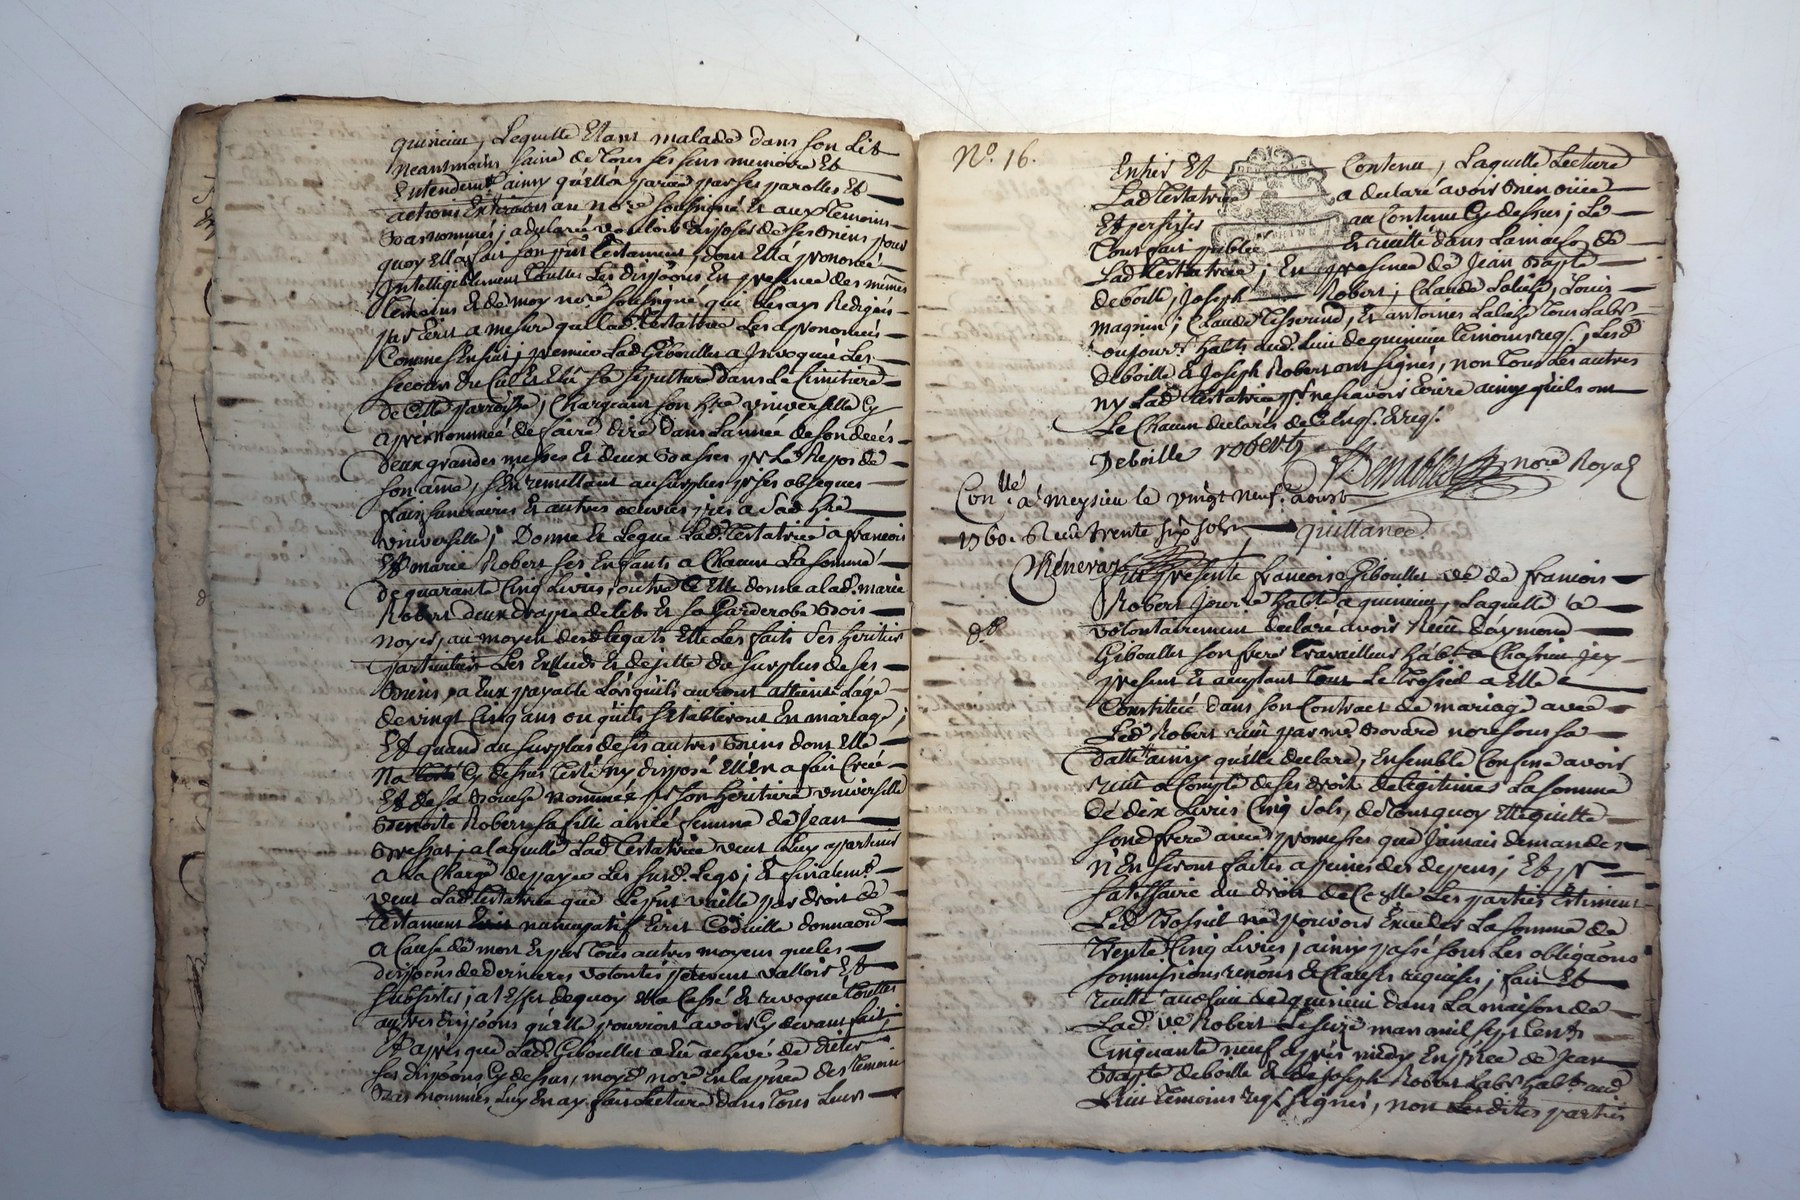 quirieu, Lequelle Etant malade dans son Lit
neantmoins saine de tous ses sens memoire Et
Entendemt ainsy quelle a parue par ses parolles Et
actions Exterieures au nore soussigné Et aux temoins
Bas nommés, a declaré vouloir disposer de ses Biens pour
quoy ella fait son put testament, dont Ella prononcé
Intelligiblement touttes Les dispoons En presence des mêmes
temoins & de moy nore soussigné qui Les ay Redigés
par Ecrit a mesure que Lad. testatrice Les a prononcés
Comme sensuit; premier Lad. Giboullet a Invoquée Les
secours du Ciel Et Elu sa sepulture dans Le simitiere
de Cette parroisse, Chargeant son htre universelle Cy
aprés nommée de faire dire dans Lannée de son decés
deux grandes messes Et deux Basses pr Le Repos de
son ame, s'En remettant au surplus pr ses obseques
frais funeraires & autres oeuvres pies a Sad. htre
universelle; Donne Et Legue Lad. testatrice a francois
Et marie Robert ses Enfants a Chacun La somme
de quarante Cinq Livres, outre Ce Elle donne a lad. marie
Robert deux draps de lits Et sa Garderobe Bois
noyer, au moyen desd. legats Elle Les faits ses heritiers
particuliers Les Exclud Et dejitte du surplus de ses
Biens, a Eux payable Lorsquils auront atteint Lage
de vingt Cinq ans ou quils s'etabliront En mariage;
Et quand au surplus de ses autres Biens dont Elle
Na Cy dessus testé ny disposé Elle En a fait Créé
Et de sa Bouche nommée pr son heritiere universelle
Benoite Robert sa fille ainée femme de Jean
Bressat; a laquelle Lad. testatrice veut Leux apartenir
a La Charge de payer Les susd. Legs; Et finalemt
veut Lad. testatrice que Le put vaille par droit de
testament nuncupatif Ecrit Codicille donnaon
a Cause de mort Et par tous autres moyens que les
dispoons de dernieres volontés peuvent valloir Et
subsister; a l'Effet de quoy Ella Cassé Et revoqué touttes
autres dispoons qu'elle pourroit avoir Cy devant fait;
Et aprés que Lad. Giboullet a Eu achevé de dicter
ses dispoons Cy dessus, moyd. nore En La pnce des temoins
Bas nommés Luy En ay fait Lecture dans tous Leurs
No. 16.
Entier Et Contenu, Laquelle Lecture
Lad. testatrice a declaré avoir Bien ouiee
Et persister au Contenu Cy dessus; Le
tout fait publié Et recitté dans La maison de
Lad. testatrice; En presence de Jean Bapte
deboille, Joseph Robert, Claude Labise, Louis
magnin, Claude tisserand, Et antoine Labise tous Labrs
ou jourrs habts aud. Lieu de quirieu temoins reqs, Lesd.
deboille & Joseph Robert ont signés, non tous Les autres
ny Lad. testatrice pr ne scavoir ecrire ainsy quils ont
Le Chacun declarés de Ce Enqs. Ereqs.
Deboille robert
nore Royal
Conllé a meysieu le vingt neuf aoust
1760. Recu trente six sols
quittance
fut presente francoise Giboullet ve de francois
Robert Jourre habte a quirieu, Laquelle a
volontairement declaré avoir Reçu d'aymond
Giboullet son frere travailleur habt a
present Et aceptant tout Le trosseil a Elle
Constitué dans son Contract de mariage avec
Led. Robert recu par me Bovard nore sous sa
datte ainsy quelle declare, Ensemble Confesse avoir
recu a Compte de ses droits de legitimes La somme
de dix Livres Cinq Sols, de tout quoy Elle quitte
sond. frere avec promesses que Jamais demandes
n'En seront faites a peine des depens; Et pr
satisfaire au droit de Ce Les parties Estiment
Led. trosseil ne pouvoir Exceder La somme de
trente Cinq Livres; ainsy passé sous Les obligaons
soumissions renons & Clauses requises; fait Et
recitté aud. lieu de quirieu dans La maison de
Lad. ve Robert Le seize mars mil sept Cents
Cinquante neuf aprés midy En pnce de Jean
Bapte deboille & de Joseph Robert Labrs habts aud.
Lieu temoins reqs signés, non Lesdites parties